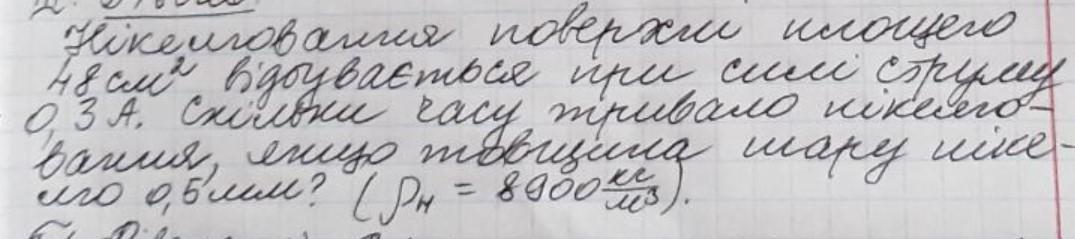 Нікелювання поверхні площею
48 см² відбувається при силі струму
0,3 А. Скільки часу тривало нікелю-
вання, якщо товщина шару ніке-
лю 0,5 мм? (ρн = 8900 кг/м³).